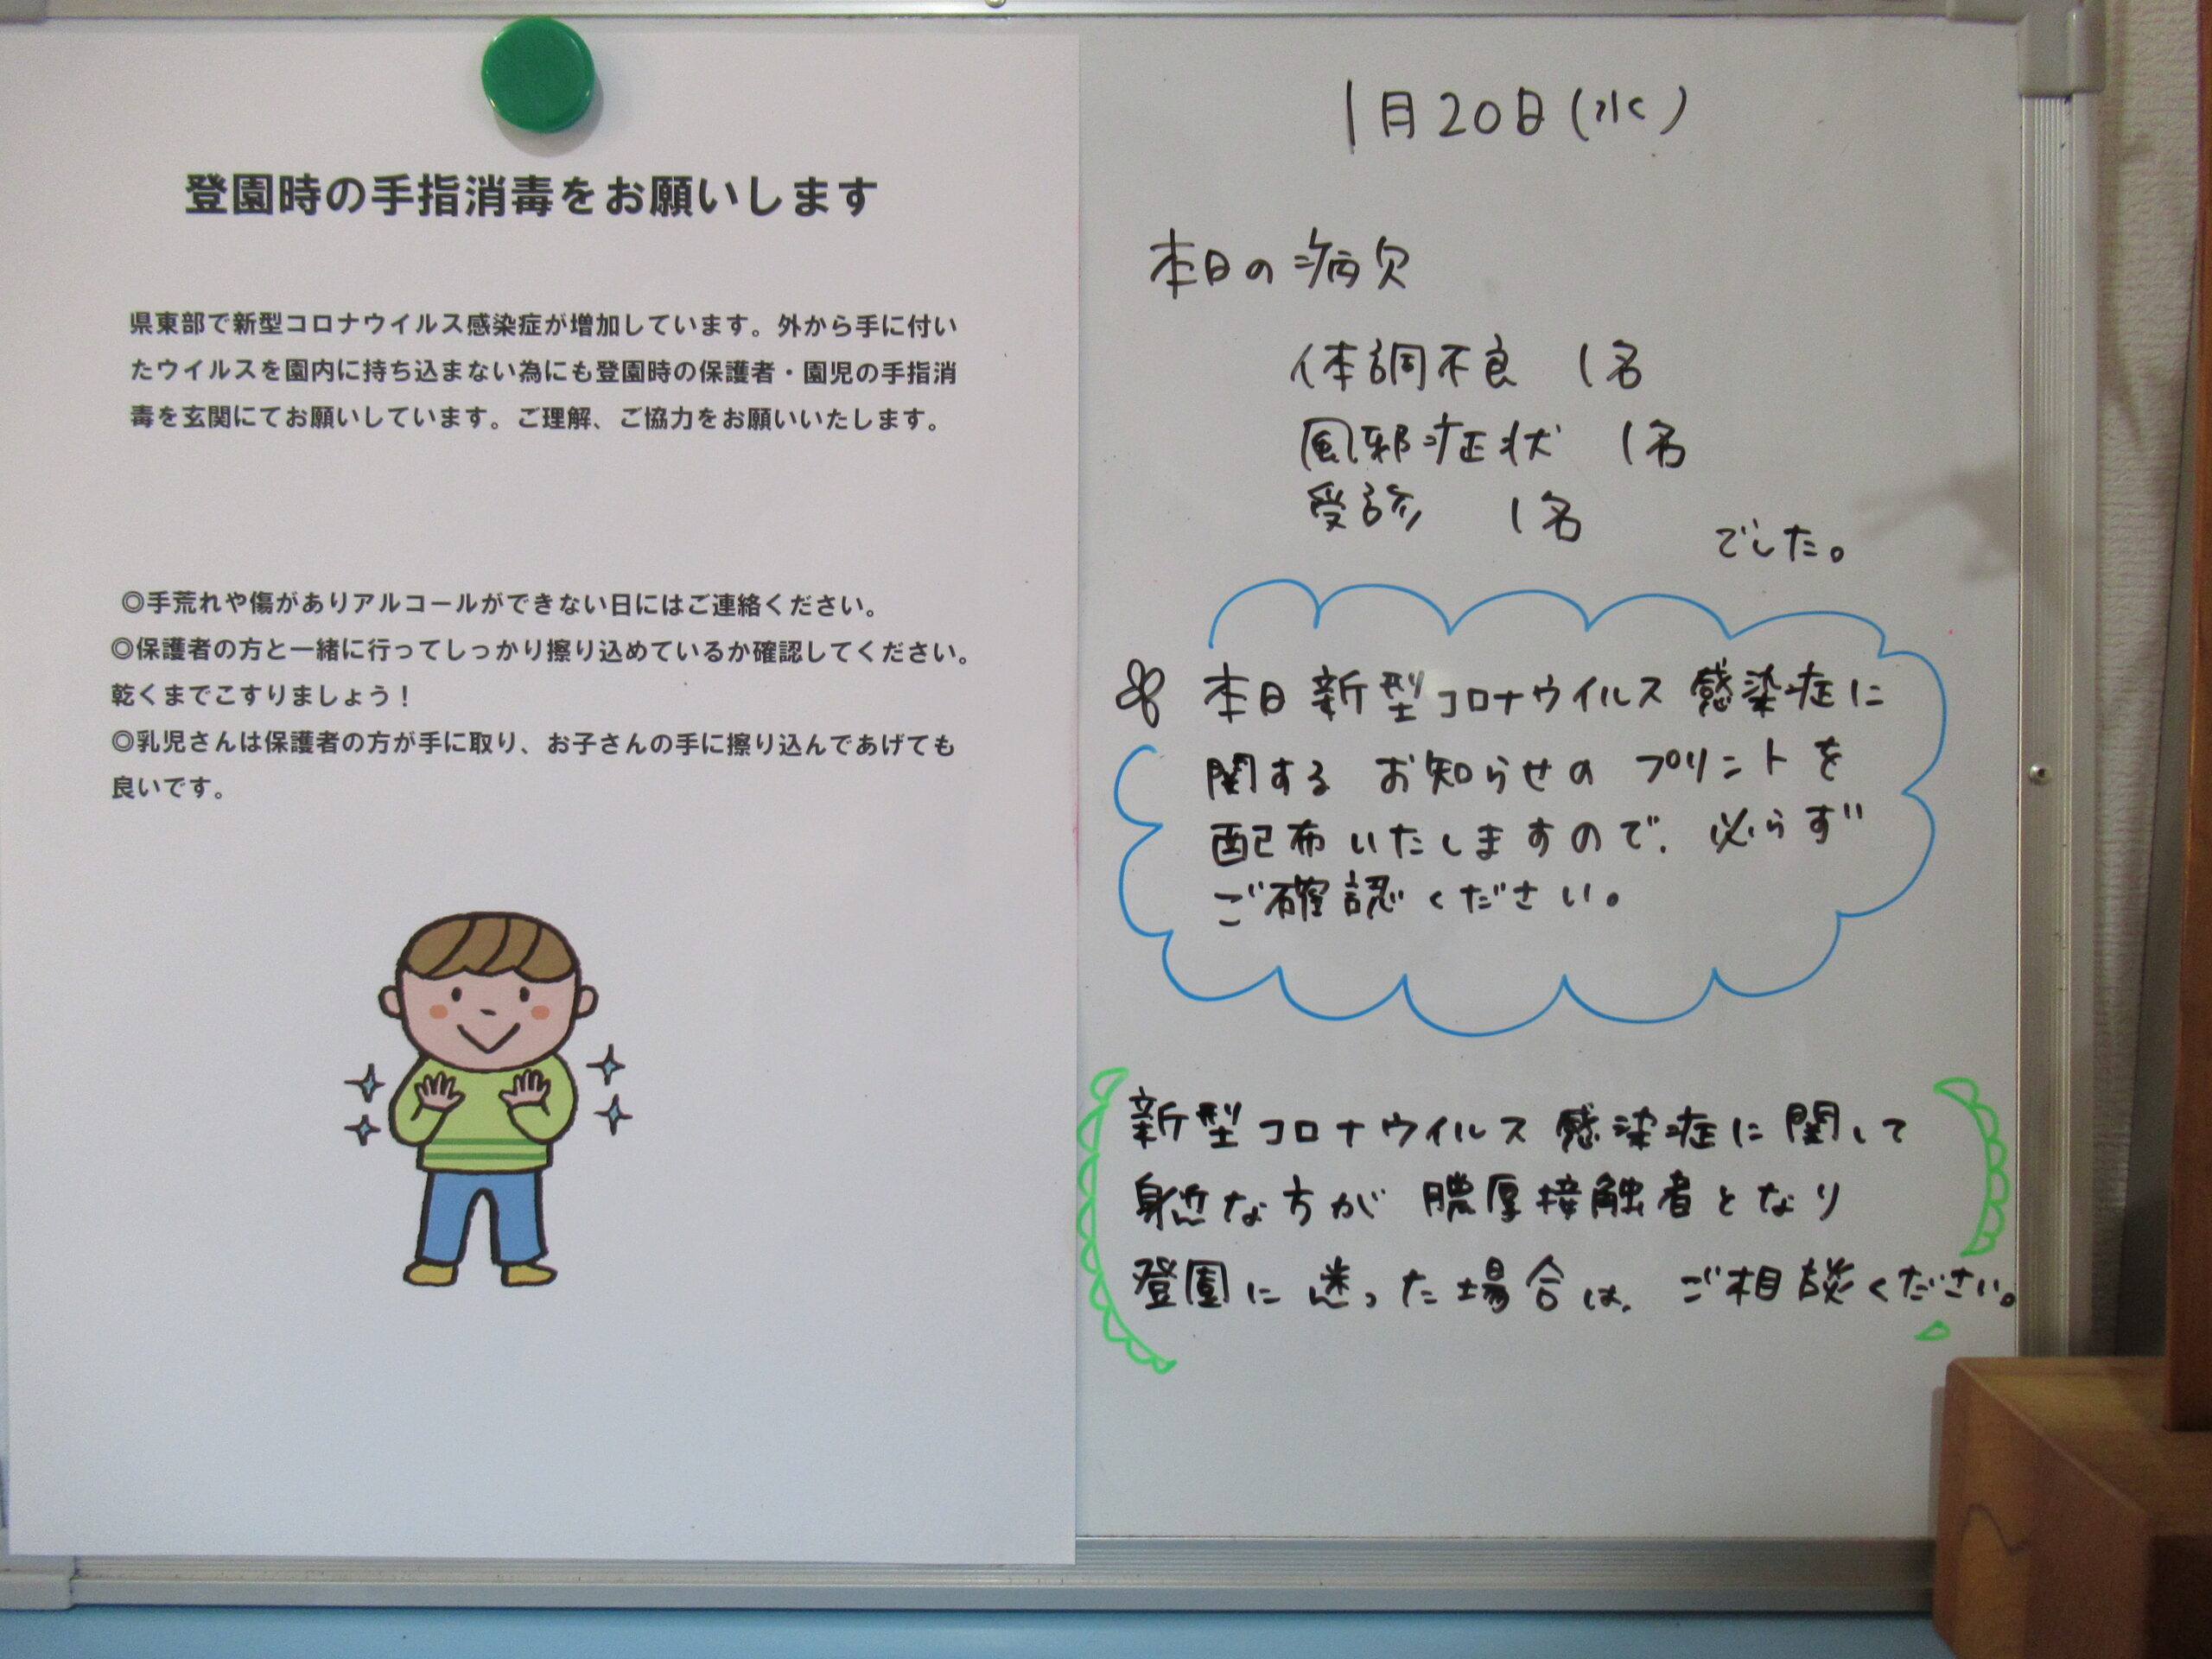 登園時の手指消毒をお願いします
県東部で新型コロナウイルス感染症が増加しています。外から手に付い
たウイルスを園内に持ち込まない為にも登園時の保護者・園児の手指消
毒を玄関にてお願いしています。ご理解、ご協力をお願いいたします。
◎手荒れや傷がありアルコールができない日にはご連絡ください。
◎保護者の方と一緒に行ってしっかり擦り込めているか確認してください。
乾くまでこすりましょう！
◎乳児さんは保護者の方が手に取り、お子さんの手に擦り込んであげても
良いです。
1月20日(水)
本日の病欠
体調不良 1名
風邪症状 1名
受診 1名
でした。
本日新型コロナウイルス感染症に
関するお知らせのプリントを
配布いたしますので、必らず
ご確認ください。
新型コロナウイルス感染症に関して
身近な方が膿厚接触者となり
登園に迷った場合は、ご相談ください。